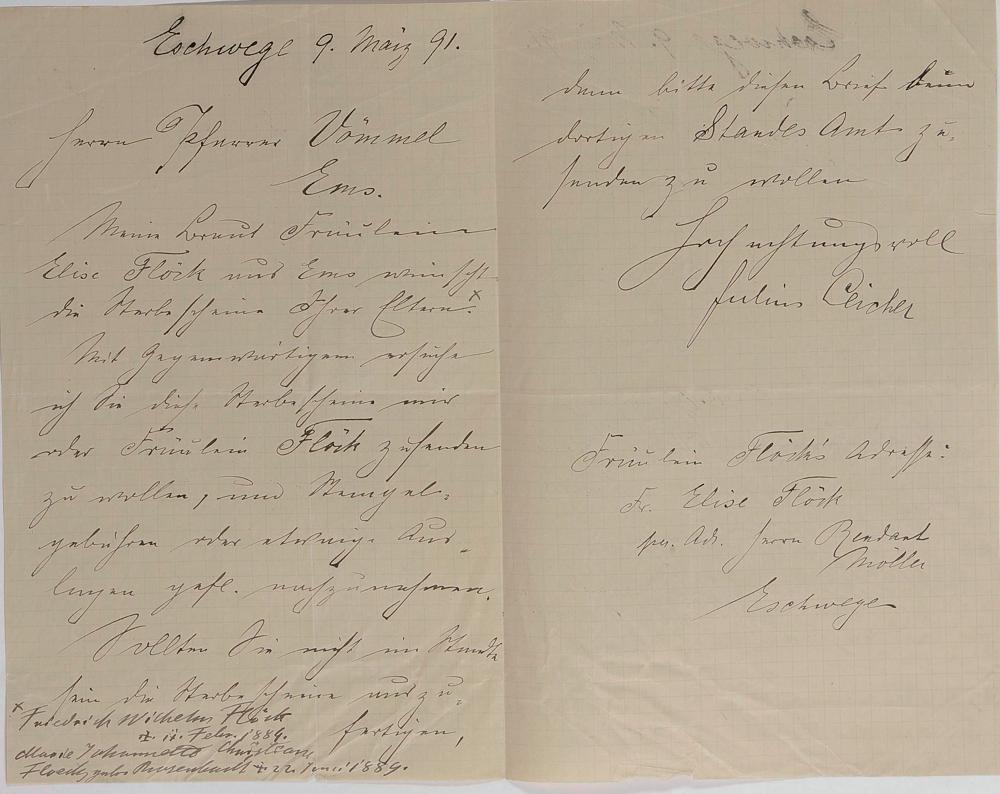 Eschwege 9. März 91.
Herrn Pfarrer Vömmel
Ems.
Meine Braut Fräulein
Elise Flöck aus Ems wünscht
die Sterbescheine Ihrer Eltern.x
Mit Gegenwärtigem ersuche
ich Sie diese Sterbescheine mir
oder Fräulein Flöck zusenden
zu wollen, und Stempel-
gebühren oder etwaige Aus-
lagen gefl. nachzunehmen.
Sollten Sie nicht im Stande
sein die Sterbescheine auszu-
fertigen,
x Friedrich Wilhelm Flöck
11. Febr. 1889.
Marie Johannette Christiane
Floeck geb. 22 Juni 1889.
dann bitte diesen Brief beim
dortigen Standes Amt zu-
senden zu wollen
Hochachtungsvoll
Julius
Fräulein Flöck's Adresse:
Fr. Elise Flöck
per. Adr. Herrn Rendant
Möller
Eschwege